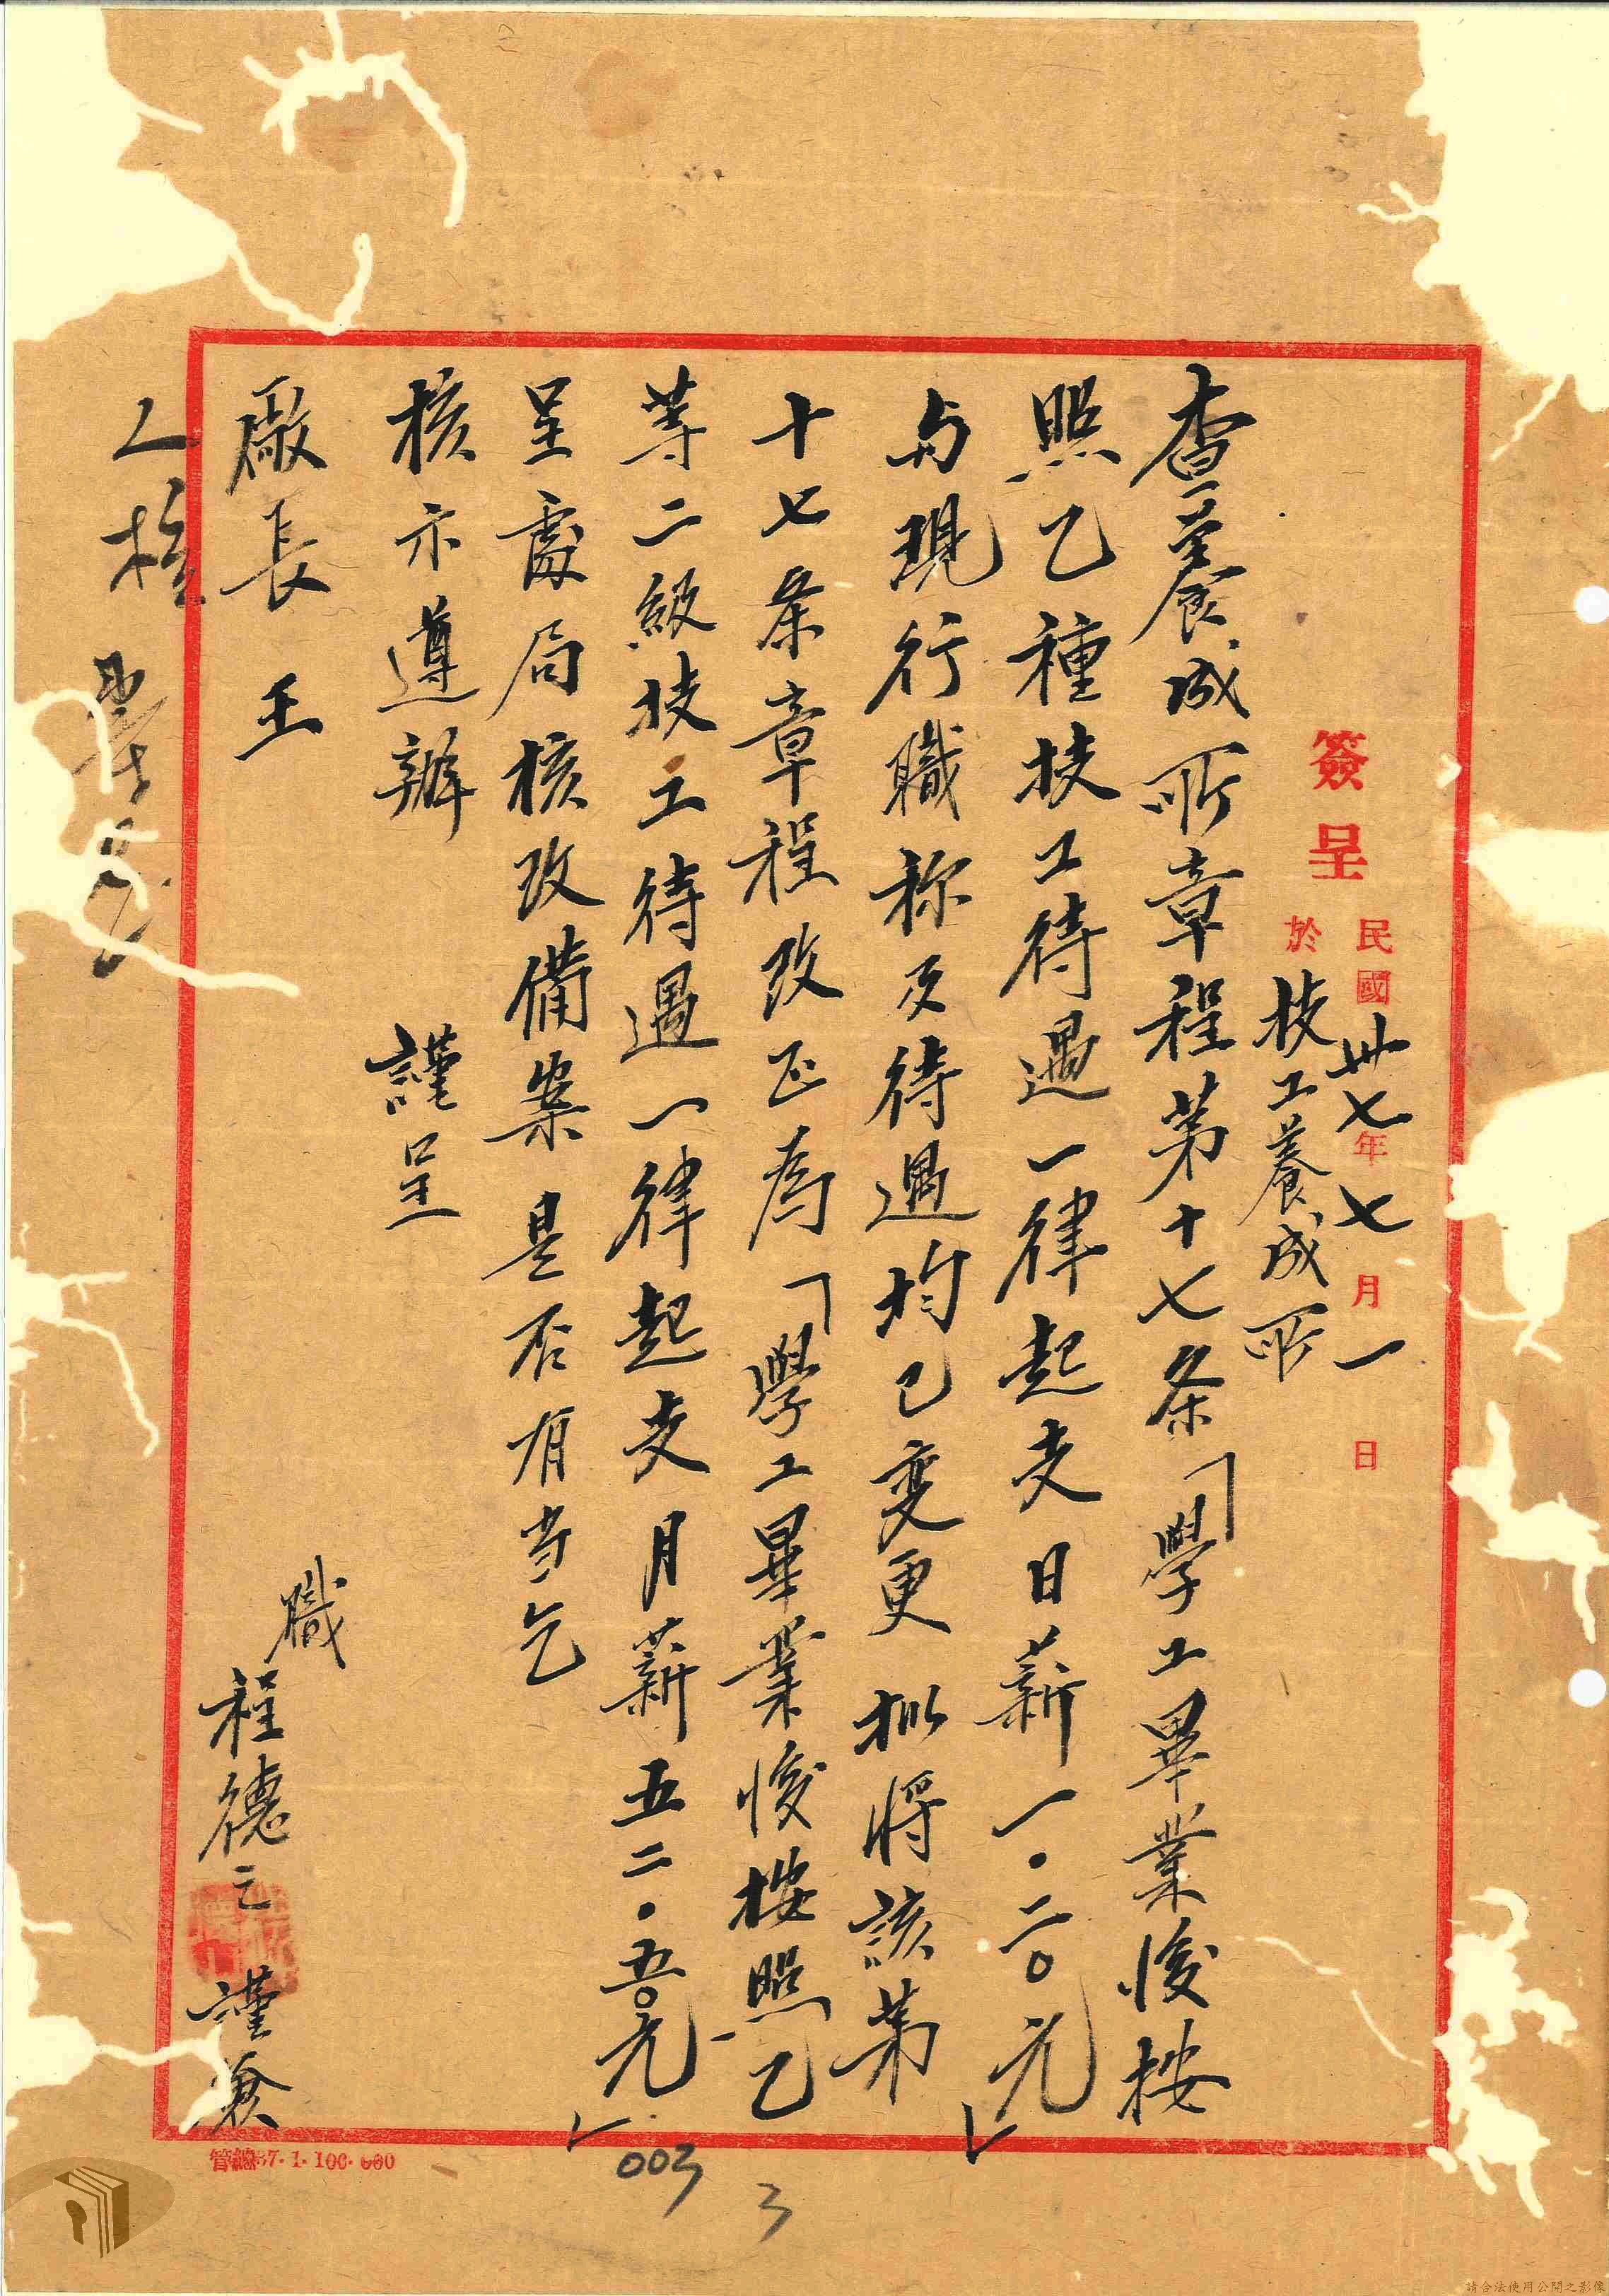 簽呈
民國卅七年七月一日
於技工養成所
查養成所章程第十七条「學工畢業後按
照乙種技工待遇一律起支日薪一.二〇元」
与現行職称及待遇均已变更拟将該第
十七条章程改正為「學工畢業後按照乙
等二級技工待遇一律起支月薪五二.五〇元」
呈處局核改備案是否有当乞
核示遵辦
謹呈
廠長王
職程德之謹簽
003
3
請合法使用公開之影像